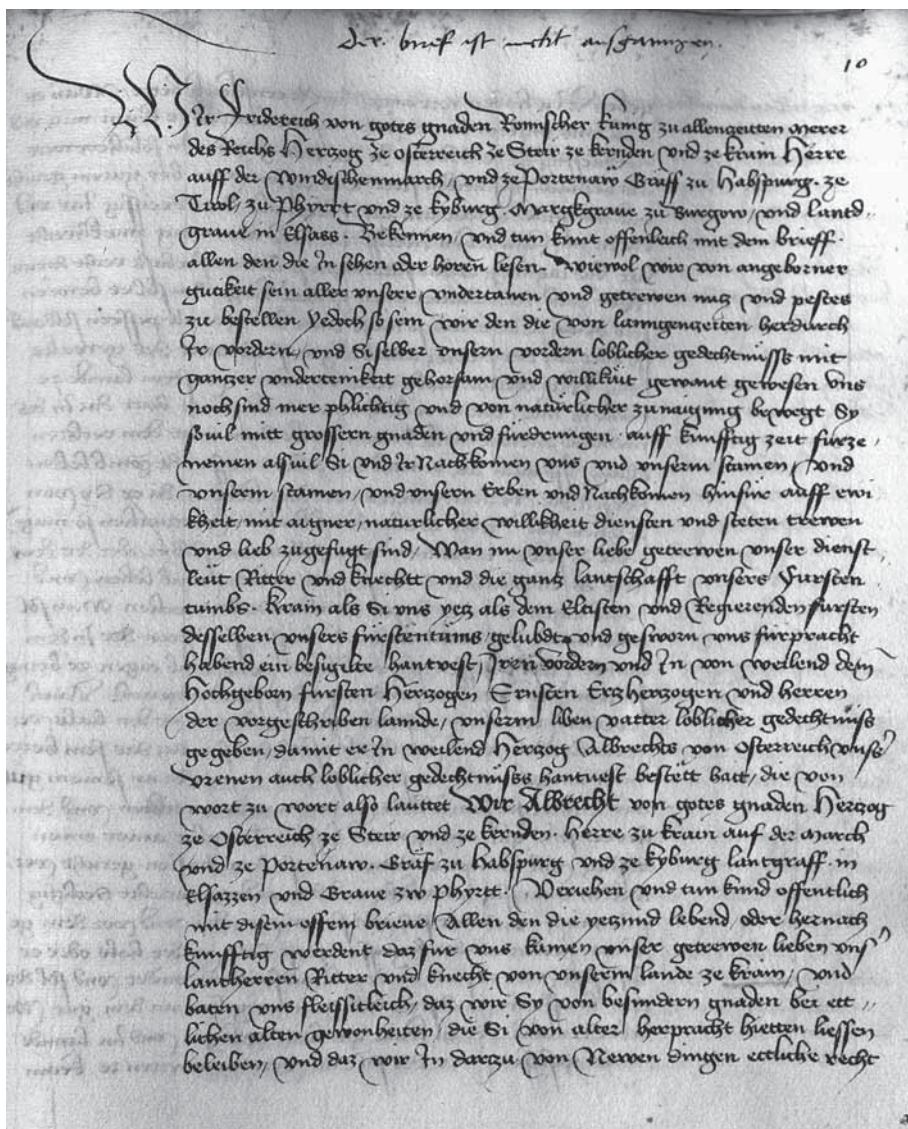 der brief ist nicht ausganngen.
10
Wir Fridereich von gotes gnaden Romischer kunig zu allenzeitten merer
des Reichs Herczog ze Osterreich ze Steir ze kernden und ze krain Herre
auff der Windischenmarch, und ze Portenaw Graff zu Habspurg. ze
Tirol, zu Phyrrt und ze kyburg. Margkgrave zu Burgow, und lantd„
grave in Elsass. Bekennen, und tun kunt offenleich mit dem brieff.
allen den die In sehen oder horen lesen. Wiewol wir von angeborner
gutikeit sein aller unserr undertanen und getrewen nucz und pestes
zu bestellen yedoch so sein wir den die von lanngenzeiten herdurch
Ir vordern, und Si selber unsern vordern loblicher gedechtnüss mit
gantzer undertenikeit gehorsam und willikait gewant gewesen uns
noch sind mer phlichtig und von natürlicher zunaigung bewegt Sy
sovil mitt grossern gnaden und fürdrungen auff künfftig zeit fürze„
nemen alsvil Si und Ir Nachkomen uns und unserm stamen, und
unserm stamen, und unsern Erben und Nachkomen hinfür auff ewi
kheit, mit aigner, naturlicher willikheit diensten und steten trewen
und lieb zugefugt sind, Wan nu unser liebe getrewen unser dienst
leüt Ritter und knechtt und die gantz lantschafft unsers Fursten
tumbs. Krain als Si uns yetz als dem Eltisten und Regierenden fursten
desselben unsers fürstentums, gelubde und gesworn uns fürpracht
habend ein besigilte hantvest, Iren vordern und In von weilend dem
Hochgeborn fursten Herczogen Ernsten Erzherczogen und herren
der vorgeschriben lannde, unserm liben vatter loblicher gedechtnüss
gegeben, damit er In weilend Herczog Albrechts von Osterreich unsers
Urenen auch loblicher gedechtnüss hantvest bestett hatt, die von
wort zu wort also lauttet Wir Albrecht von gotes gnaden Herczog
ze Osterreich ze Steir und ze kernden. Herre zu krain auf der March
und ze Portenaw. Graf zu Habspurg und ze kyburg lantgraff in
Elsazzen und Grave zw phyrtt. Veriehen und tun kund offentlich
mit disem offem brieve, Allen den die yetzund lebend, oder hernach
kunfftig werdent, daz für uns kamen unser getrewen lieben uns
lantherren Ritter und knecht von unserm lande ze krain, und
baten uns fleissicleich, daz wir Sy von besundern gnaden bei ett„
lichen alten gewonheiten, die Si von alter herpracht hietten liessen
beleiben, und daz wir In darczu von Newen dingen ettliche recht